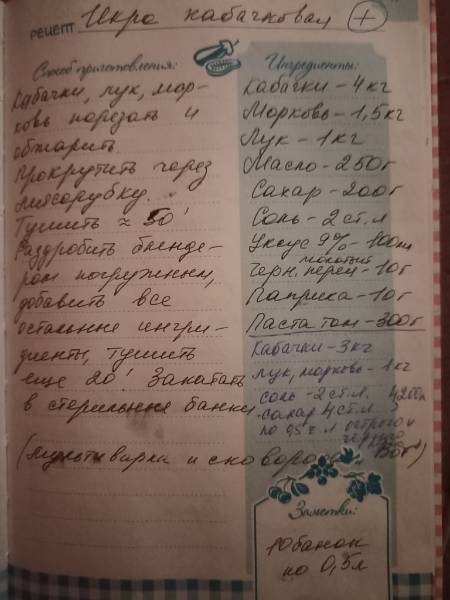 РЕЦЕПТ Икра кабачковая +
Способ приготовления:
Кабачки, лук, мор-
ковь порезать и
обжарить.
Прокрутить через
мясорубку.
Тушить ≈ 50'
Раздробить бленде-
ром погружным,
добавить все
остальные ингри-
диенты, тушить
еще 20! Закатать
в стерильные банки.
(мультиварка и сковорода
Ингредиенты:
Кабачки - 4 кг
Морковь - 1,5 кг
Лук - 1 кг
Масло - 250 г
Сахар - 200 г
Соль - 2 ст. л
Уксус 9% - 100 мл
молотый
Черн. перец - 10 г
Паприка - 10 г
Паста том - 300 г
Кабачки - 3 кг
лук, морковь - 1 кг
соль - 2 ст. л.
сахар 4 ст. л
по 0,5 ч. л острого и
Заметки:
10 банок
по 0,5 л